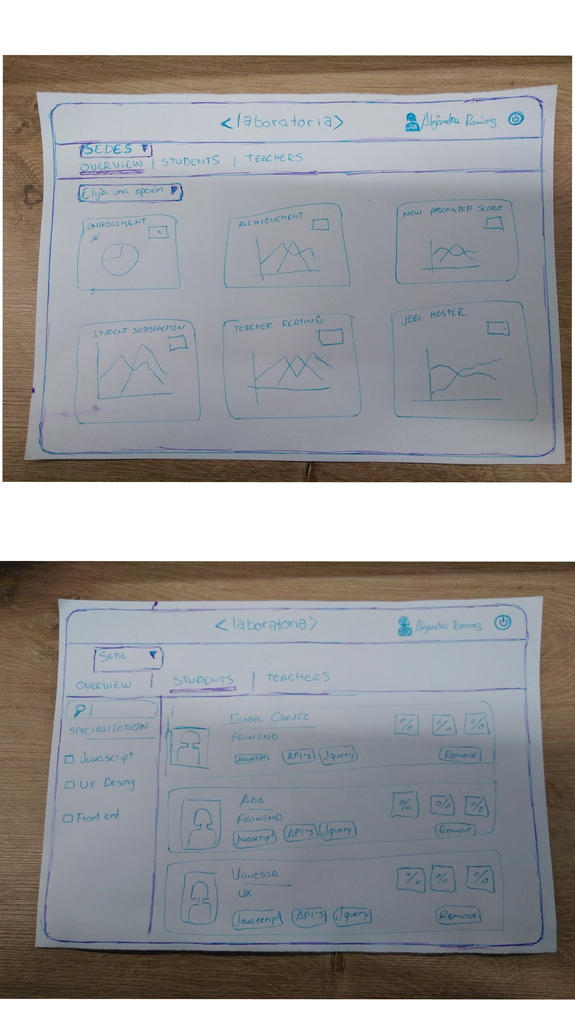 <laboratoria>
Alejandra Ramirez
SEDES ▼
OVERVIEW | STUDENTS | TEACHERS
Elija una opción ▼
ENROLLMENT
ACHIEVEMENT
NEW PROMOTER SCORE
STUDENT SATISFACTION
TEACHER REATING
JEDI MASTER
<laboratoria>
Alejandra Ramirez
SEDE ▼
OVERVIEW | STUDENTS | TEACHERS
SPECIALIZATION
Javascript
UX Desing
Front end
ISABEL CHAVEZ
FRONEND
Javascript API'S Jquery
% % %
Remove
ADA
FRONEND
Javascript API'S Jquery
% % %
Remove
VANESSA
UX
Javascript API'S Jquery
% % %
Remove